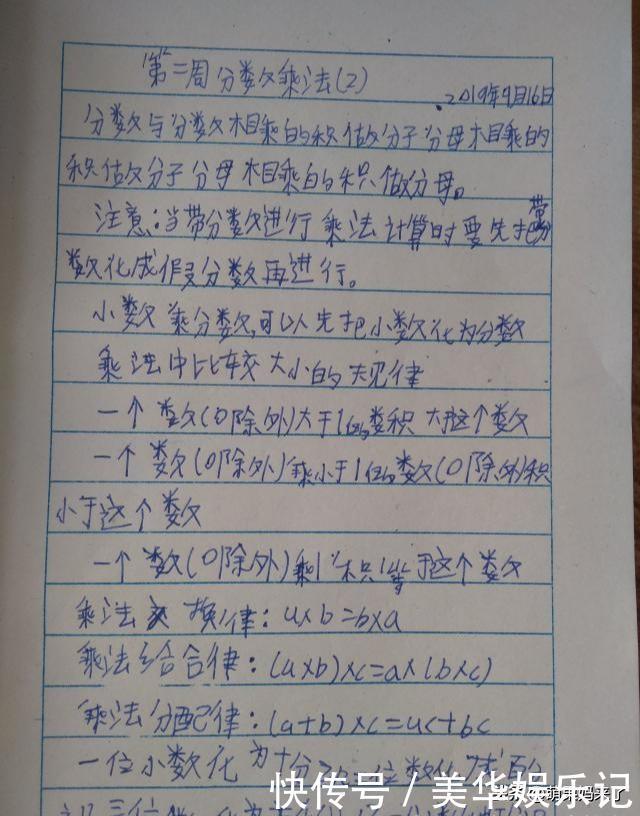 第二周分数乘法(2)
2019年9月16日
分数与分数相乘的积做分子分母相乘的
积做分子分母相乘的积做分母。
注意:当带分数进行乘法计算时要先把带分
数化成假分数再进行。
小数乘分数,可以先把小数化为分数
乘法中比较大小的规律
一个数(0除外)大于1的数积大于这个数
一个数(0除外)乘小于1的数(0除外)积
小于这个数
一个数(0除外)乘1积等于这个数
乘法交换律:a×b=b×a
乘法结合律:(a×b)×c=a×(b×c)
乘法分配律:(a+b)×c=ac+bc
一位小数化为十分之 位数化成百分
快传号/美华娱乐记
萌末妈来了